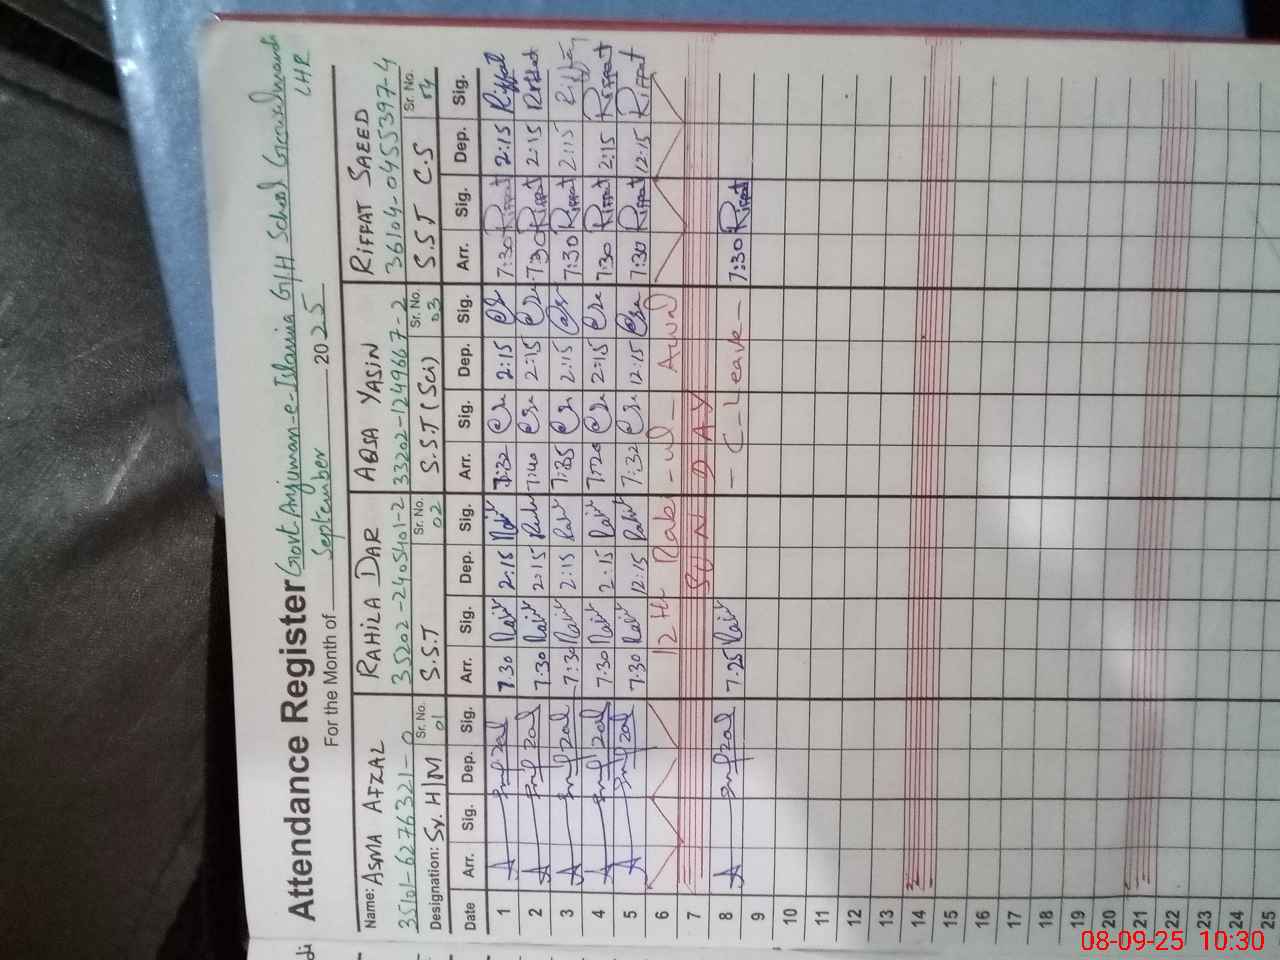 Attendance Register Govt. Anjuman-e-Islamia G/H School
LHR
For the Month of September 2025
Name: ASMA AFZAL RAHILA DAR AQSA YASIN RIFFAT SAEED
35101-6276321-0 35202-2405401-2 33202-1249667-2 36104-0455397-4
Designation: Sr. H/M Sr. No. 01 S.S.T Sr. No. 02 S.S.T (Sci) Sr. No. 03 S.S.T C.S Sr. No. 04
Date Arr. Sig. Dep. Sig. Arr. Sig. Dep. Sig. Arr. Sig. Dep. Sig. Arr. Sig. Dep. Sig.
1 A Afzal 7.30 2:15 7:32 2:15 7:30 Riffat 2:15 Riffat
2 A Afzal 7.30 2:15 7:40 2:15 7:30 Riffat 2:15 Riffat
3 A Afzal 7:30 2:15 2:15 7:30 Riffat 2:15
4 A Afzal 7.30 2:15 7:20 2:15 7:30 Riffat 2:15 Riffat
5 A Afzal 7.30 12:15 7:32 12:15 7:30 Riffat 12:15 Riffat
6 12th Rabi-ul-Awal
7 SUNDAY
8 A Afzal 7.25 - C-Leave - 7:30 Riffat
9
10
11
12
13
14
15
16
17
18
19
20
21
22
23
24
25
08-09-25 10:30